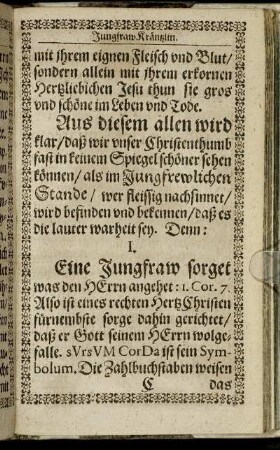 Jungfraw Kräntzlin.
mit jhrem eignen Fleisch vnd Blut/
sondern allein mit jhrem erkornen
Hertzliebichen Jesu thun sie gros
vnd schöne im Leben vnd Tode.
Aus diesem allen wird
klar/daß wir vnser Christenthumb
fast in keinem Spiegel schöner sehen
können/als im Jungfrewlichen
Stande/ wer fleissig nachsinnet/
wird befinden vnd bekennen/daß es
die lauter warheit sey. Denn:
I.
Eine Jungfraw sorget
was den HErrn angehet: 1. Cor. 7.
Also ist eines rechten HertzChristen
fürnembste sorge dahin gerichtet/
daß er Gott seinem HErrn wolge-
falle. sVrsVM CorDa ist sein Sym-
bolum. Die Zahlbuchstaben weisen
C das